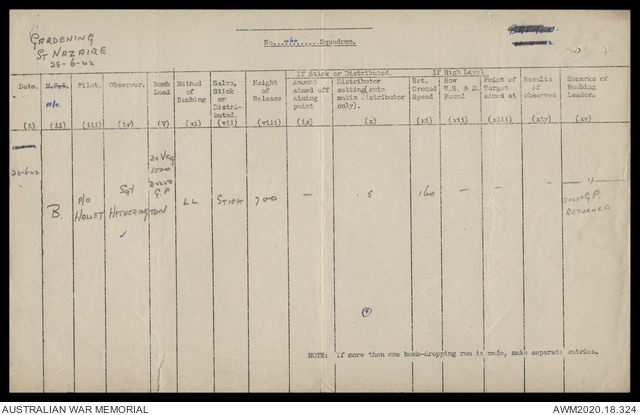 GARDENING
ST NAZAIRE
28-6-42
BREMEN
No. 460 Squadron.
If Stick or Distributed. If High Level
Date. Pilot. Observer. Bomb Load Method of Bombing Salvo, Stick or Distributed. Height of Release Amount aimed off aiming point Distributor setting (auto matic distributor only). Est. Ground Speed How W.S. & D. Found Point of Target aimed at Results if observed Remarks of Bombing Leader.
A/C
(i) (ii) (iii) (iv) (v) (vi) (vii) (viii) (ix) (x) (xi) (xii) (xiii) (xiv) (xv)
28-6-42 B. P/O HOLLET Sgt HETHERINGTON 1500 2x250 G.P LL STICK 700 — 5 160 — — —
2x250 G.P. RETURNED
NOTE: If more than one bomb-dropping run is made, make separate entries.
AUSTRALIAN WAR MEMORIAL
AWM2020.18.324